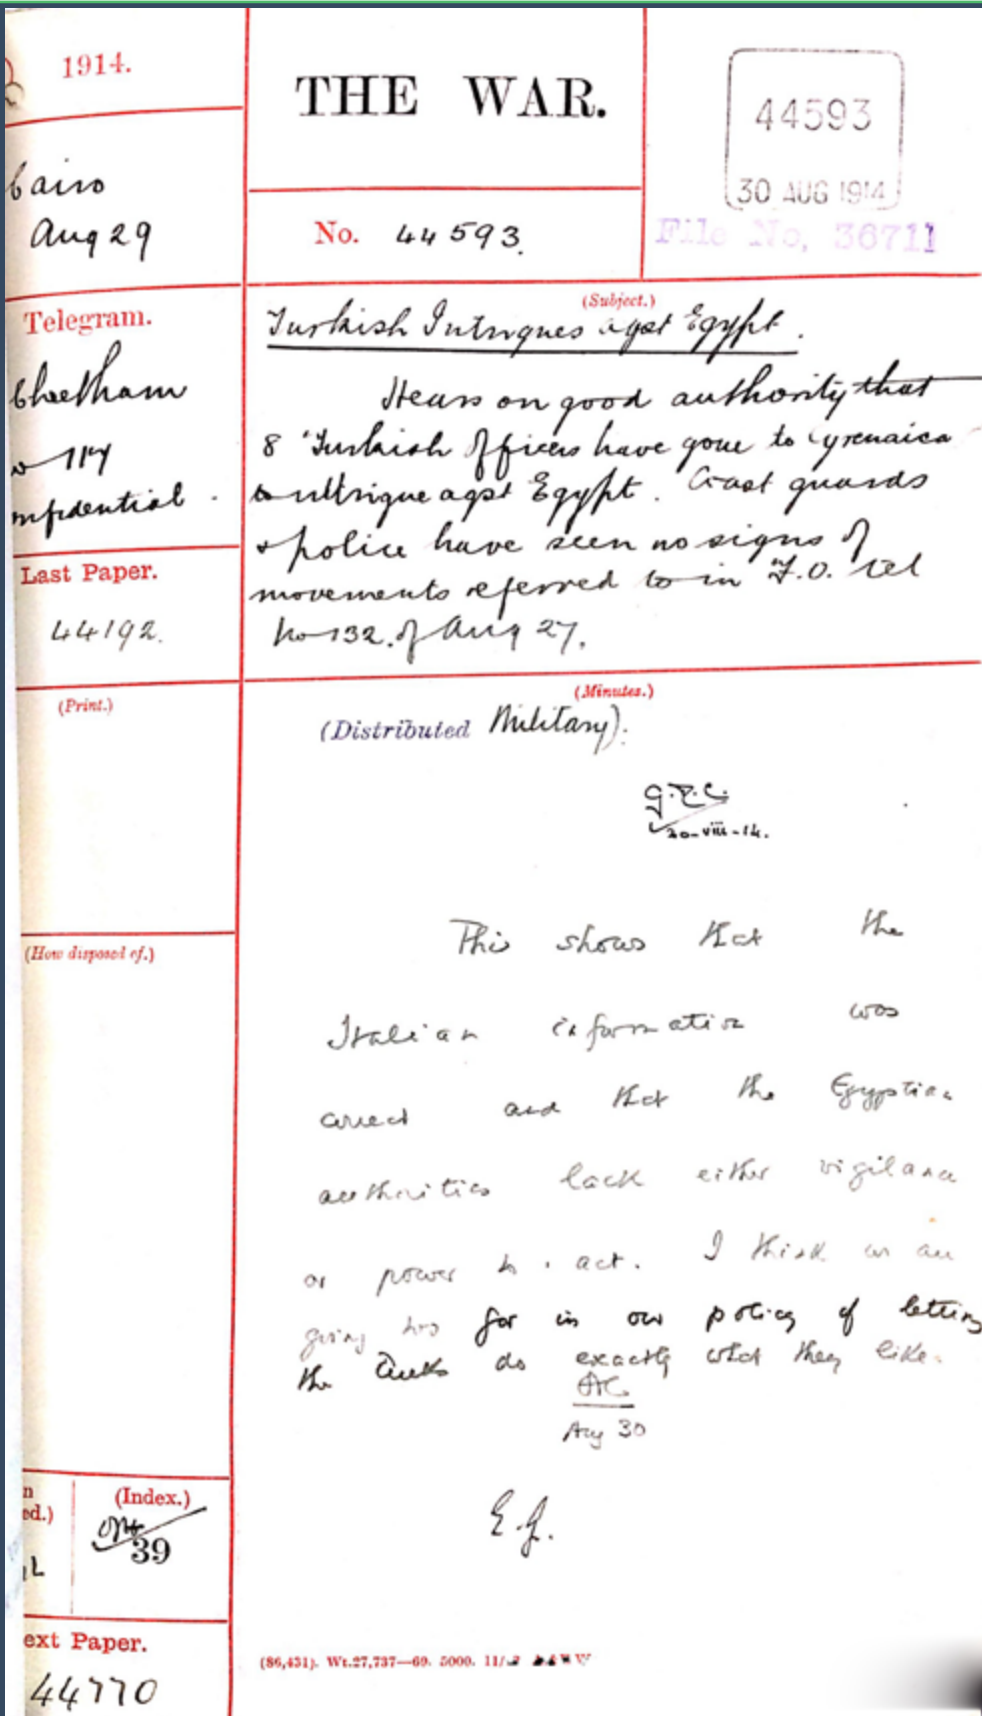 1914.
THE WAR.
44593
30 AUG 1914
File No, 36711
Cairo
Aug 29
No. 44593.
Telegram.
Cheetham
No 117
onfidential.
Last Paper.
44192.
(Print.)
(How disposed of.)
n
ed.)
L
(Index.)
39
ext Paper.
44770
(Subject.)
Turkish Intrigues agst Egypt.
Hears on good authority that
8 Turkish Officers have gone to Cyrenaica
to intrigue agst Egypt. Coast guards
& police have seen no signs of
movements referred to in F.O. tel
No 132. of Aug 27.
(Minutes.)
(Distributed Military).
G.R.C.
30-viii-14.
This shows that the
Italian information was
correct and that the Egyptian
authorities lack either vigilance
or power to act. I think we are
going too far in our policy of letting
the Turks do exactly what they like.
Aug 30
E.G.
(86,431). Wt.27,737—69. 5000. 11/